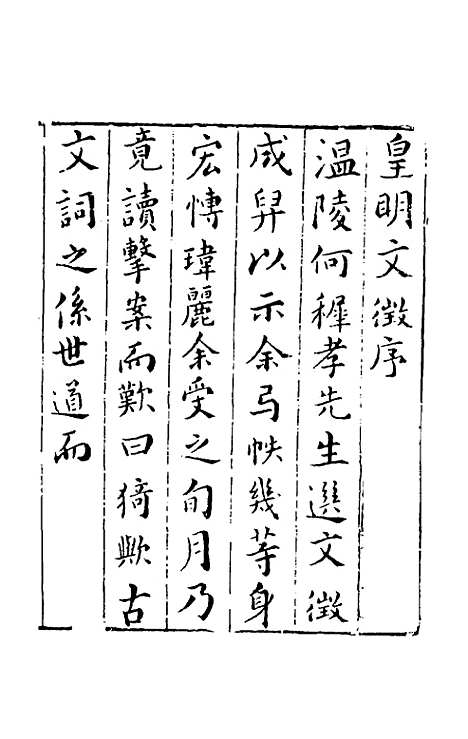 皇明文徴序
温陵何穉孝先生選文徴
成舁以示余弓帙幾等身
宏博瑋麗余受之旬月乃
竟讀擊案而歎曰猗歟古
文詞之係世道而